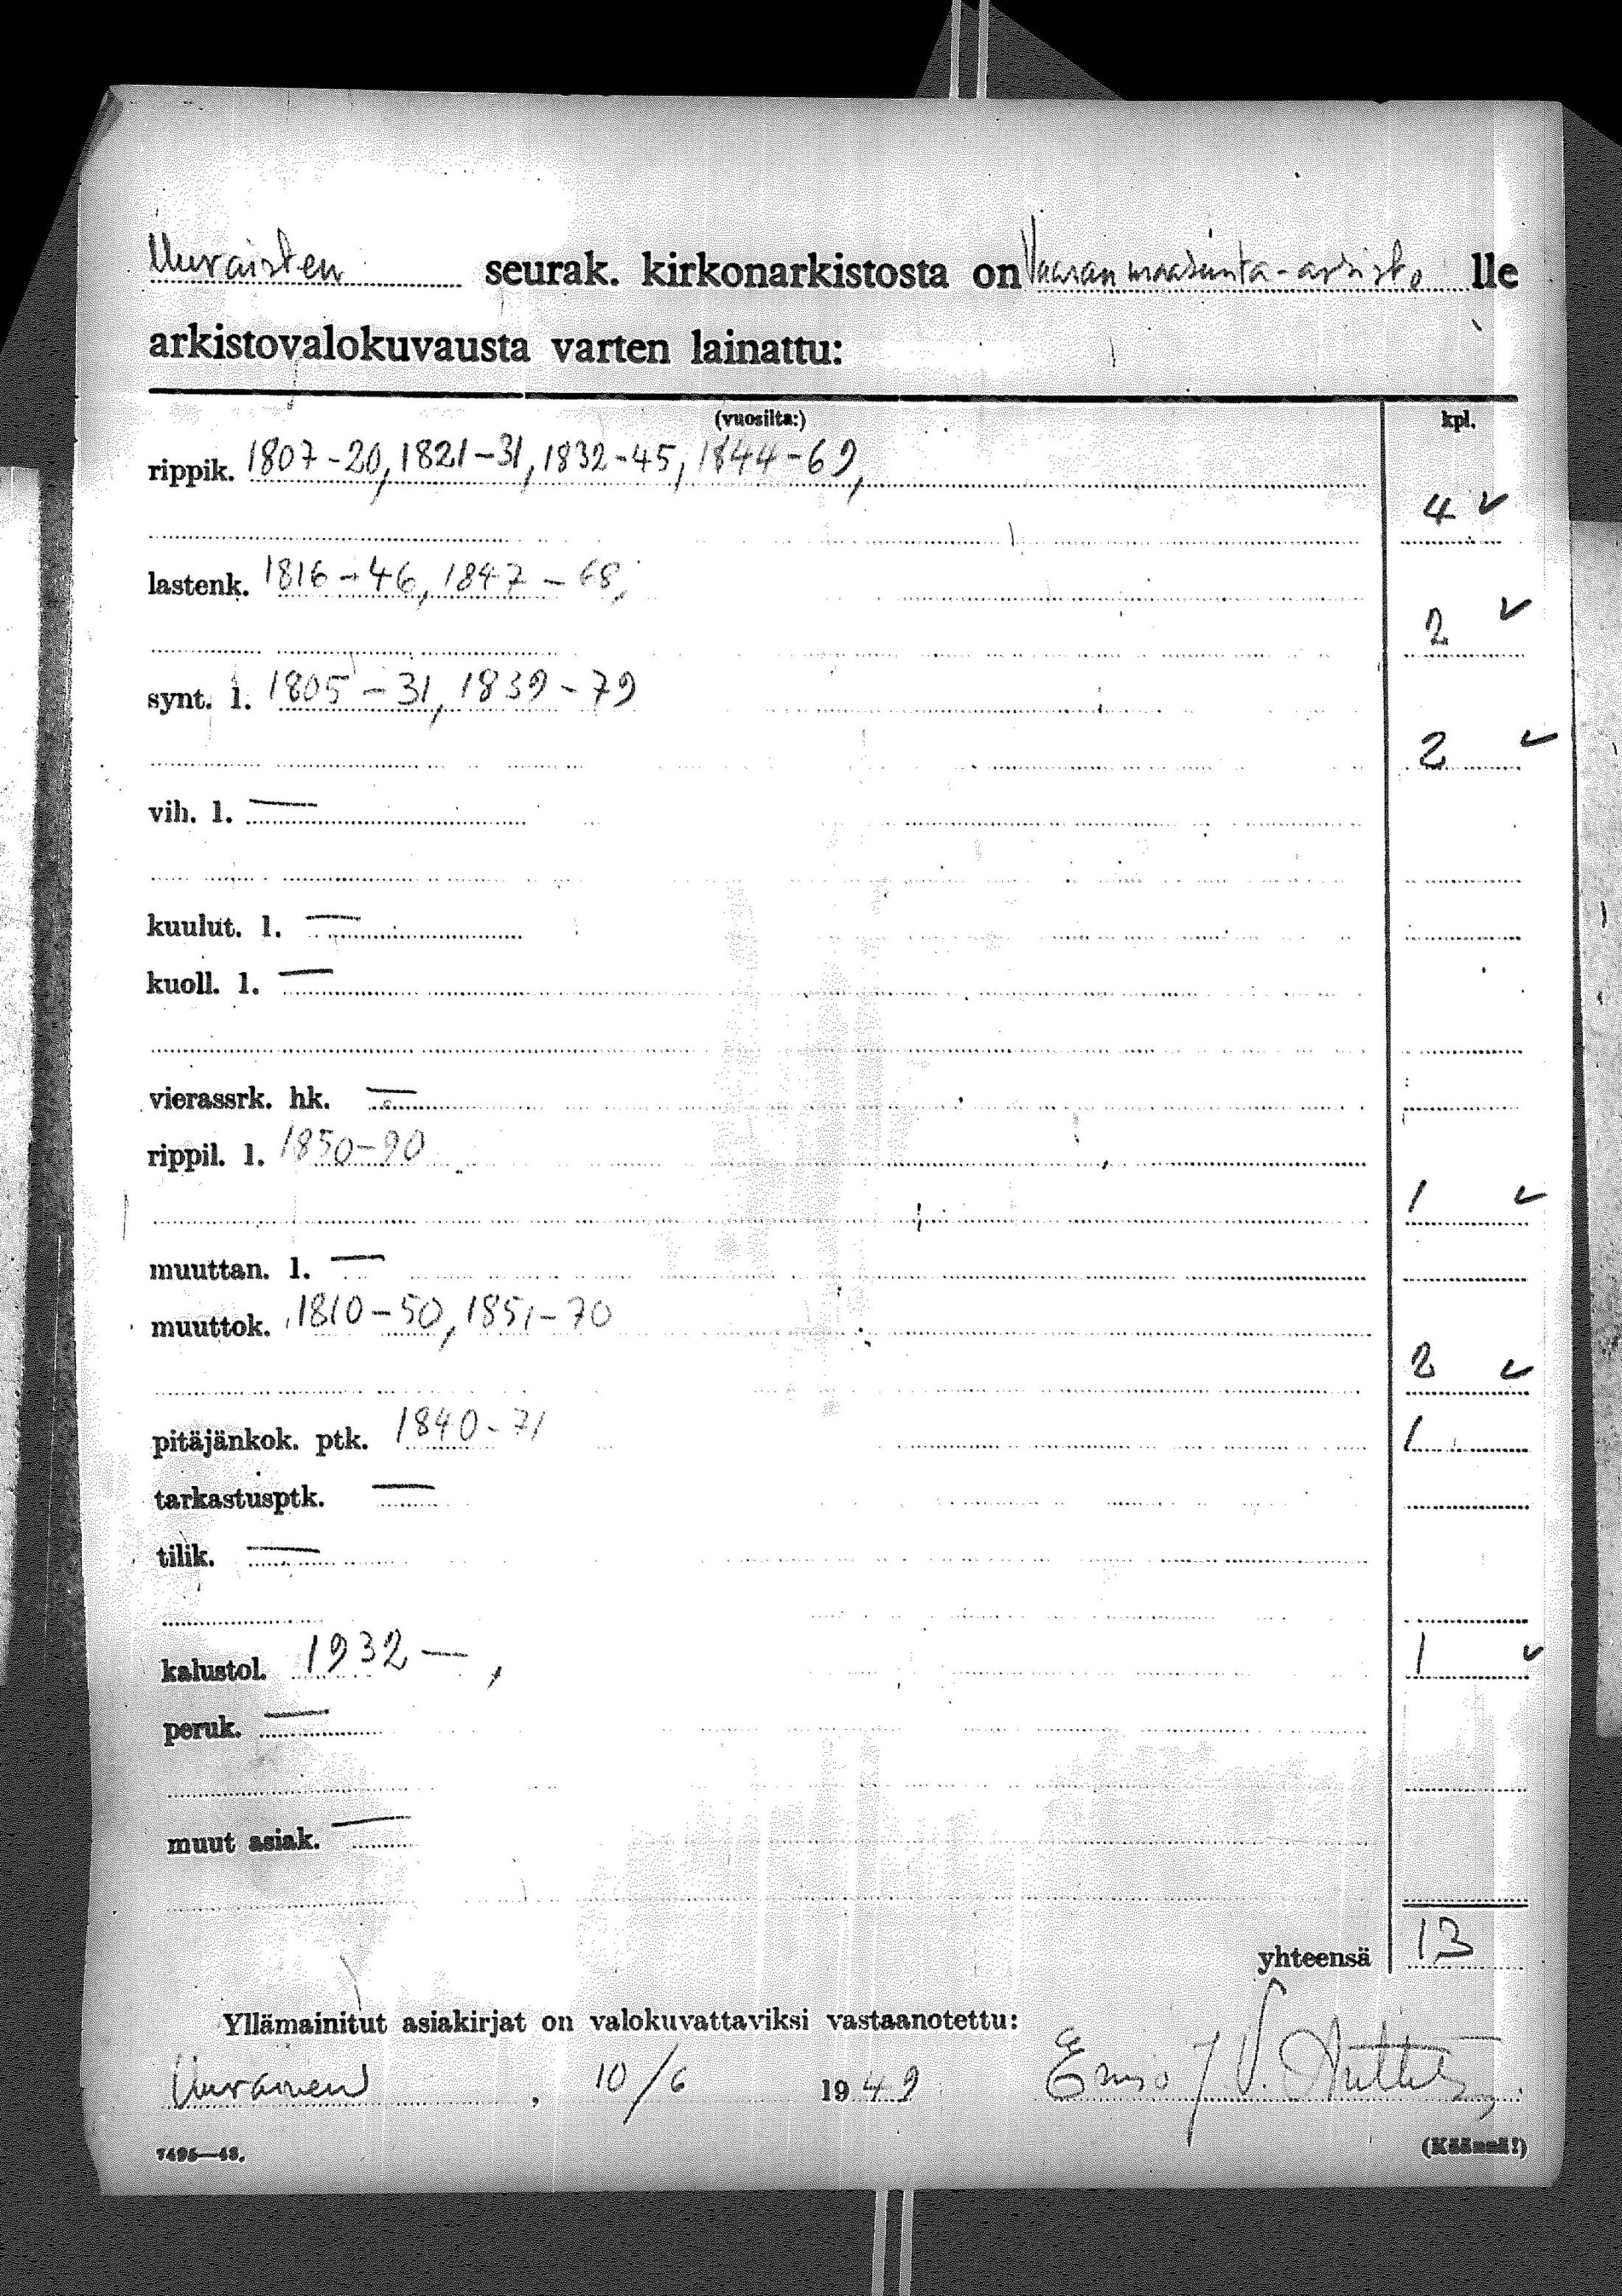 Uuraisten seurak. kirkonarkistosta on Vaasan maakunta-arkisto lle
arkistovalokuvausta varten lainattu:
(vuosilta:) kpl.
rippik. 1807-20, 1821-31, 1832-45, 1844-69,
4 ✓
lastenk. 1816-46, 1847-68,
2 ✓
synt. l. 1805-31, 1839-79
2 ✓
vih. l. —
kuulut. l. —
kuoll. l. —
vierassrk. hk. —
rippil. l. 1850-90
1 ✓
muuttan. l. —
muuttok. 1810-50, 1851-70
2 ✓
pitäjänkok. ptk. 1840-71 1
tarkastusptk. —
tilik. —
kalustol. 1932—, 1 ✓
peruk. —
muut asiak. —
yhteensä 13
Yllämainitut asiakirjat on valokuvattaviksi vastaanotettu:
Uurainen, 10/6 1949
7495—48. (Käännä!)